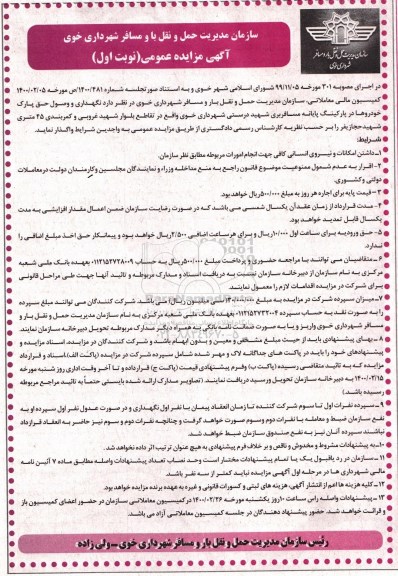 سازمان مدیریت حمل و نقل بار و مسافر شهرداری خوی
آگهی مزایده عمومی (نوبت اول)
سازمان مدیریت حمل و نقل بار و مسافر
شهرداری خوی
در اجرای مصوبه ۳۰۱ مورخه ۹۹/۱۱/۰۵ شورای اسلامی شهر خوی و به استناد صورتجلسه شماره ۱۴۰۰/۴۸۱/ص مورخه ۱۴۰۰/۰۲/۰۵
کمیسیون مالی معاملاتی، سازمان مدیریت حمل و نقل بار و مسافر شهرداری خوی در نظر دارد نگهداری و وصول حق پارک
خودروها در پارکینگ پایانه مسافربری شهید درستی شهرداری خوی واقع در تقاطع بلوار شهید غروبی و کمربندی ۴۵ متری
شهید حجازیفر را بر حسب نظریه کارشناس رسمی دادگستری از طریق مزایده عمومی به واجدین شرایط واگذار نماید.
شرایط:
۱-داشتن امکانات و نیروی انسانی کافی جهت انجام امورات مربوطه مطابق نظر سازمان.
۲- اقرار به عدم شمول ممنوعیت موضوع قانون راجع به منع مداخله وزراء و نمایندگان مجلسین و کارمندان دولت در معاملات
دولتی و کشوری.
۳- قیمت پایه برای اجاره هر روز به مبلغ ۵۰۰/۰۰۰ ریال خواهد بود.
۴- مدت قرارداد از زمان عقد آن یکسال شمسی می باشد که در صورت رضایت سازمان ضمن اعمال مقدار افزایشی به مدت
یکسال قابل تمدید خواهد بود.
۵- حق ورودیه برای ساعت اول ۱۰/۰۰۰ ریال و برای هر ساعت اضافی ۲/۵۰۰ ریال خواهد بود و پیمانکار حق اخذ مبلغ اضافی را
ندارد.
۶- متقاضیان می توانند با مراجعه حضوری و پرداخت مبلغ ۵۰۰/۰۰۰ ریال به حساب ۰۱۱۲۱۵۲۷۲۸۰۰۹ بعهده بانک ملی شعبه
مرکزی به نام سازمان از دبیرخانه سازمان نسبت به دریافت اسناد و مدارک مربوطه و تائید آنها جهت طی مراحل قانونی
برای شرکت در مزایده اقدامات لازم را معمول نمایند.
۷-میزان سپرده شرکت در مزایده به مبلغ ریال می باشد. شرکت کنندگان می توانند مبلغ سپرده
را به صورت نقد به حساب سپرده بعهده بانک ملی شعبه مرکزی به نام سازمان مدیریت حمل و نقل بار و
مسافر شهرداری خوی واریز و یا به صورت ضمانت نامه بانکی به همراه دیگر مدارک مربوطه تحویل دبیرخانه سازمان نمایند.
۸-بهای پیشنهادی باید از حیث مبلغ مشخص و معین و بدون ابهام باشد و شرکت کنندگان در مزایده، اسناد مزایده و
پیشنهادهای خود را باید در پاکت های جداگانه لاک و مهر شده شامل سپرده شرکت در مزایده (پاکت الف) اسناد و قرارداد
مزایده که به تائید متقاضی رسیده (پاکت ب) و فرم پیشنهادی قیمت (پاکت ج) قرار داده و تا آخر وقت اداری روز شنبه مورخه
۱۴۰۰/۰۲/۲۵ به دبیرخانه سازمان تحویل و رسید دریافت نمایند. (تصاویر مدارک ارائه شده بایستی حتماً به تائید مراجع مربوطه
رسیده باشد.)
۹- سپرده نفرات اول تا سوم شرکت کننده تا زمان انعقاد پیمان با نفر اول نگهداری و در صورت عدول نفر اول سپرده او به
نفع سازمان ضبط و معامله با نفرات دوم و سوم صورت خواهد گرفت و چنانچه نفرات دوم و سوم نیز حاضر به انعقاد قرارداد
نباشند سپرده آنان نیز به نفع صندوق سازمان ضبط خواهد شد.
۱۰-به پیشنهادات مشروط و مخدوش و ناقص و بر خلاف فرم پیشنهادی به هیچ عنوان ترتیب اثر داده نخواهد شد.
۱۱-سازمان در رد یا قبول یک یا تمام پیشنهادات مختار است و حد نصاب تعداد پیشنهادات واصله مطابق ماده ۷ آئین نامه
مالی شهرداری ها در مرحله اول آگهی مزایده نباید کمتر از سه نفر باشد.
۱۲- کلیه هزینه ها اعم از انتشار آگهی، هزینه های ثبتی و کسورات قانونی و غیره به عهده برنده مزایده خواهد بود.
۱۳- پیشنهادات واصله راس ساعت ۱۰ روز یکشنبه مورخه ۱۴۰۰/۰۲/۲۶ در کمیسیون معاملاتی سازمان در حضور اعضای کمیسیون باز
و قرائت خواهد شد. حضور پیشنهاد دهندگان در جلسه کمیسیون معاملاتی آزاد می باشد.
رئیس سازمان مدیریت حمل و نقل بار و مسافر شهرداری خوی - ولی زاده